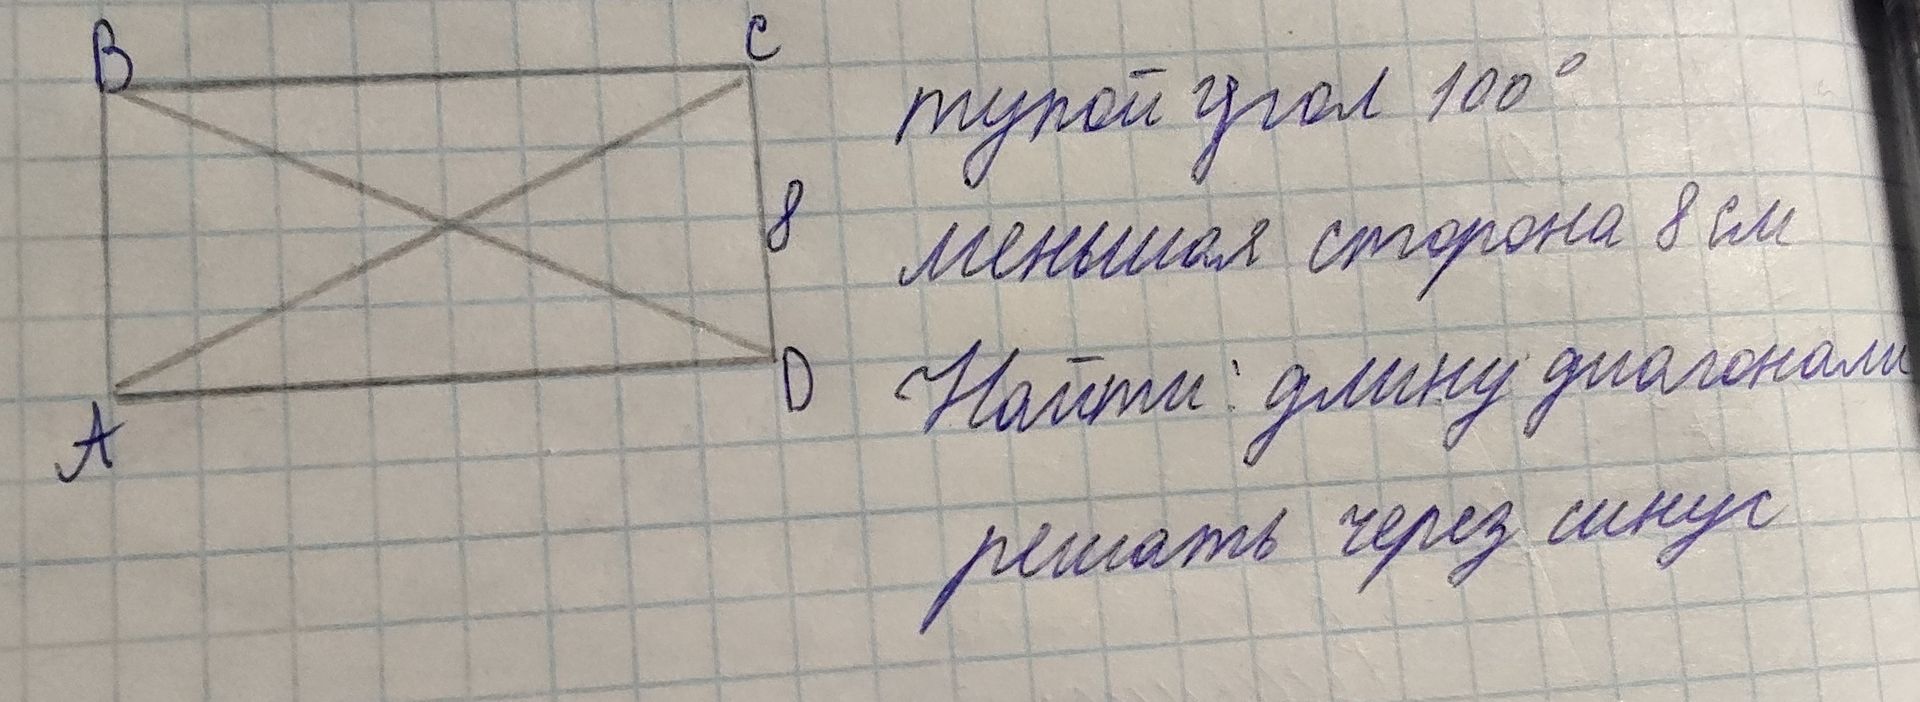 B
C
тупой угол 100°
8
меньшая сторона 8 см
D
Найти: длину диагонали
A
решать через синус